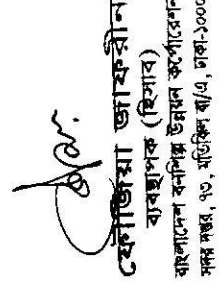 ফৌজিয়া জাফরীন
ব্যবস্থাপক (হিসাব)
বাংলাদেশ রসায়ন শিল্প উন্নয়ন কর্পোরেশন
সদর দপ্তর, ৭৩, মতিঝিল বা/এ, ঢাকা-১০০০